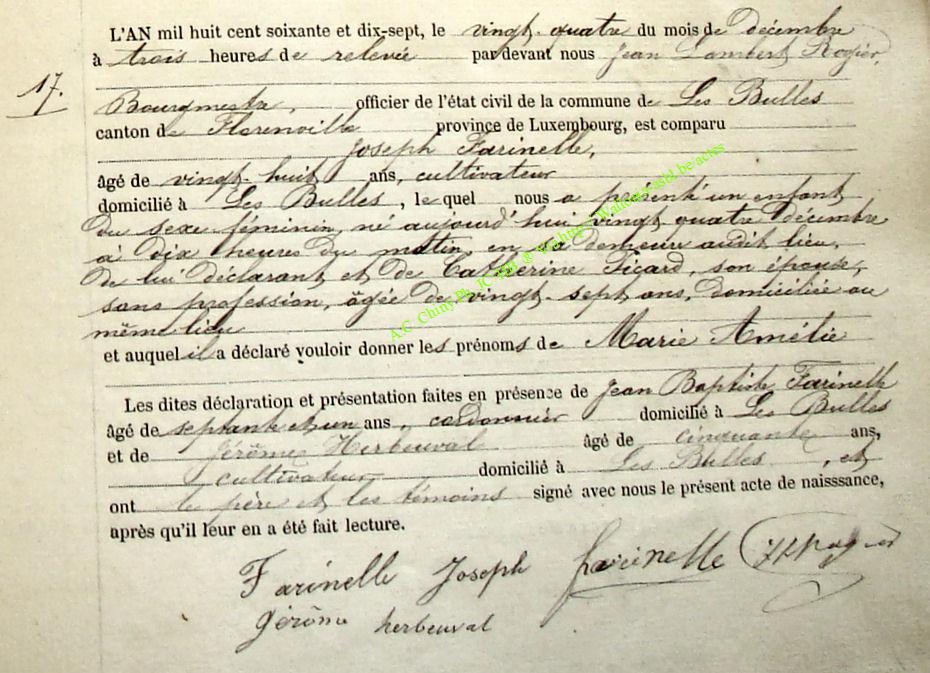 L'AN mil huit cent soixante et dix-sept, le vingt-quatre du mois de décembre
à trois heures de relevée par devant nous Jean Lambert Rogier,
17.
Bourgmestre, officier de l'état civil de la commune de Les Bulles
canton de Florenville province de Luxembourg, est comparu
Joseph Farinelle,
âgé de vingt-huit ans, cultivateur
domicilié à Les Bulles, lequel nous a présenté un enfant
du sexe féminin, né aujourd'hui vingt quatre décembre
à dix heures du matin en sa demeure audit lieu,
de lui déclarant et de Catherine Ficard, son épouse,
sans profession, âgée de vingt-sept ans, domiciliée au
même lieu
et auquel il a déclaré vouloir donner les prénoms de Marie Amélie
Les dites déclaration et présentation faites en présence de Jean Baptiste Farinelle
âgé de septante et un ans, cordonnier domicilié à Les Bulles
et de Jérôme Herbeuval âgé de cinquante ans,
cultivateur domicilié à Les Bulles, et
ont le père et les témoins signé avec nous le présent acte de naisssance,
après qu'il leur en a été fait lecture.
Farinelle Joseph farinelle
gérôme herbeuval
A.C. Chiny